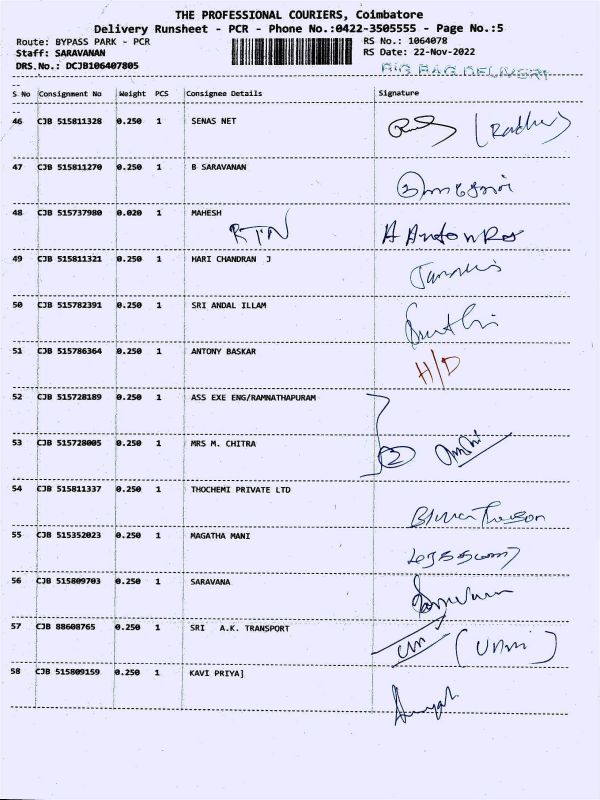 THE PROFESSIONAL COURIERS, Coimbatore
Delivery Runsheet - PCR - Phone No.:0422-3505555 - Page No.:5
Route: BYPASS PARK - PCR RS No.: 1064078
Staff: SARAVANAN RS Date: 22-Nov-2022
DRS.No.: DCJB106407805 BIG BAG DELIVERY
S No Consignment No Weight PCS Consignee Details Signature
46 CJB 515811328 0.250 1 SENAS NET (Radha)
47 CJB 515811270 0.250 1 B SARAVANAN
48 CJB 515737980 0.020 1 MAHESH
RTN A Anton Ros
49 CJB 515811321 0.250 1 HARI CHANDRAN J
50 CJB 515782391 0.250 1 SRI ANDAL ILLAM
51 CJB 515786364 0.250 1 ANTONY BASKAR H/D
52 CJB 515728189 0.250 1 ASS EXE ENG/RAMNATHAPURAM
53 CJB 515728005 0.250 1 MRS M. CHITRA 2
54 CJB 515811337 0.250 1 THOCHEMI PRIVATE LTD
55 CJB 515352023 0.250 1 MAGATHA MANI
56 CJB 515809703 0.250 1 SARAVANA
57 CJB 88608765 0.250 1 SRI A.K. TRANSPORT
58 CJB 515809159 0.250 1 KAVI PRIYA]